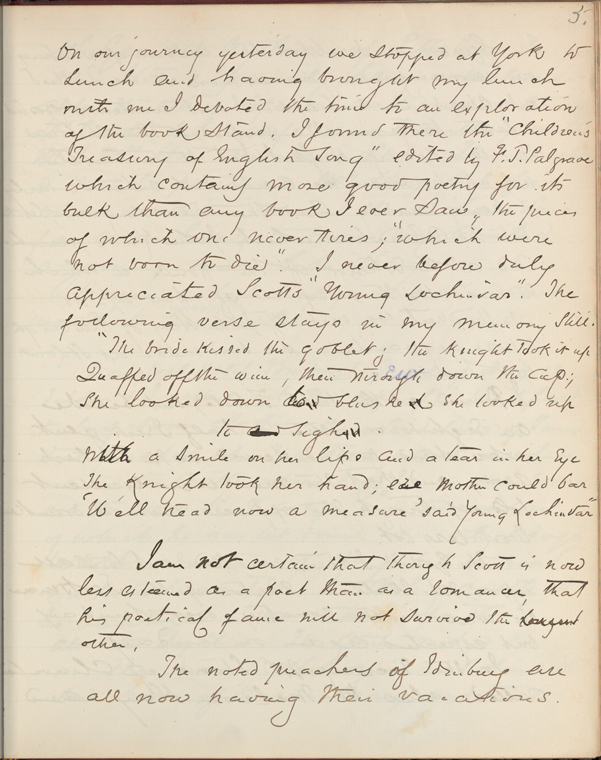 5.
On our journey yesterday we stopped at York to
Lunch and having brought my lunch
with me I devoted the time to an exploration
of the book stand. I found there the "Children's
Treasury of English Song" edited by F. T. Palgrave
which contains more good poetry for its
bulk than any book I ever saw, the pieces
of which one never tires; "which were
not born to die". I never before duly
appreciated Scotts "Young Lochinvar". The
following verse stays in my memory still.
"The bride kissed the goblet; the Knight took it up
Quaffed off the wine, then threw down the Cup;
She looked down to blush & She looked up
to sigh.
With a smile on her lips and a tear in her Eye
The Knight took her hand; ere Mother could bar
"We'll tread now a measure' said Young Lochinvar"
I am not certain that though Scott is now
less esteemed as a poet than as a romancer, that
his poetical fame will not survive the
other.
The noted preachers of Edinburg are
all now having their vacations.